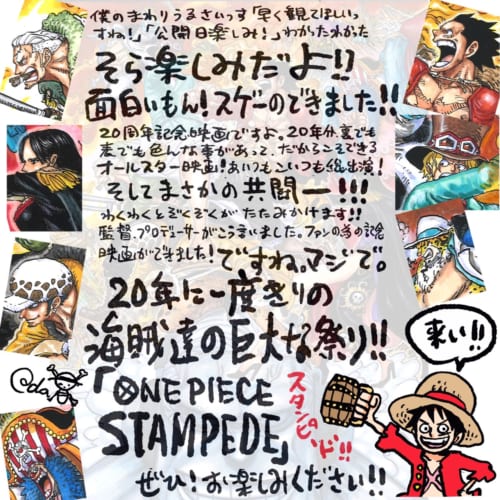 僕のまわりうるさいっす「早く観てほしいっ
すね!」「公開日楽しみ!」わかったわかった
そら楽しみだよ!!
面白いもん!スゲーのできました!!
20周年記念映画ですよ。20年外裏でも
表でも色んな事があって、だからこそできる
オールスター映画!あいつもこいつも総出演!
そしてまさかの共闘ー!!!
わくわくとぞくぞくがたたみかけます!!
監督、プロデューサーがこういいました。ファンの為の記念
映画ができました!ですね。マジで。
20年に一度きりの
海賊達の巨大な祭り!!
「ONE PIECE
STAMPEDE」
スタンピード!!
ぜひ!お楽しみください!!
来い!!
Oda